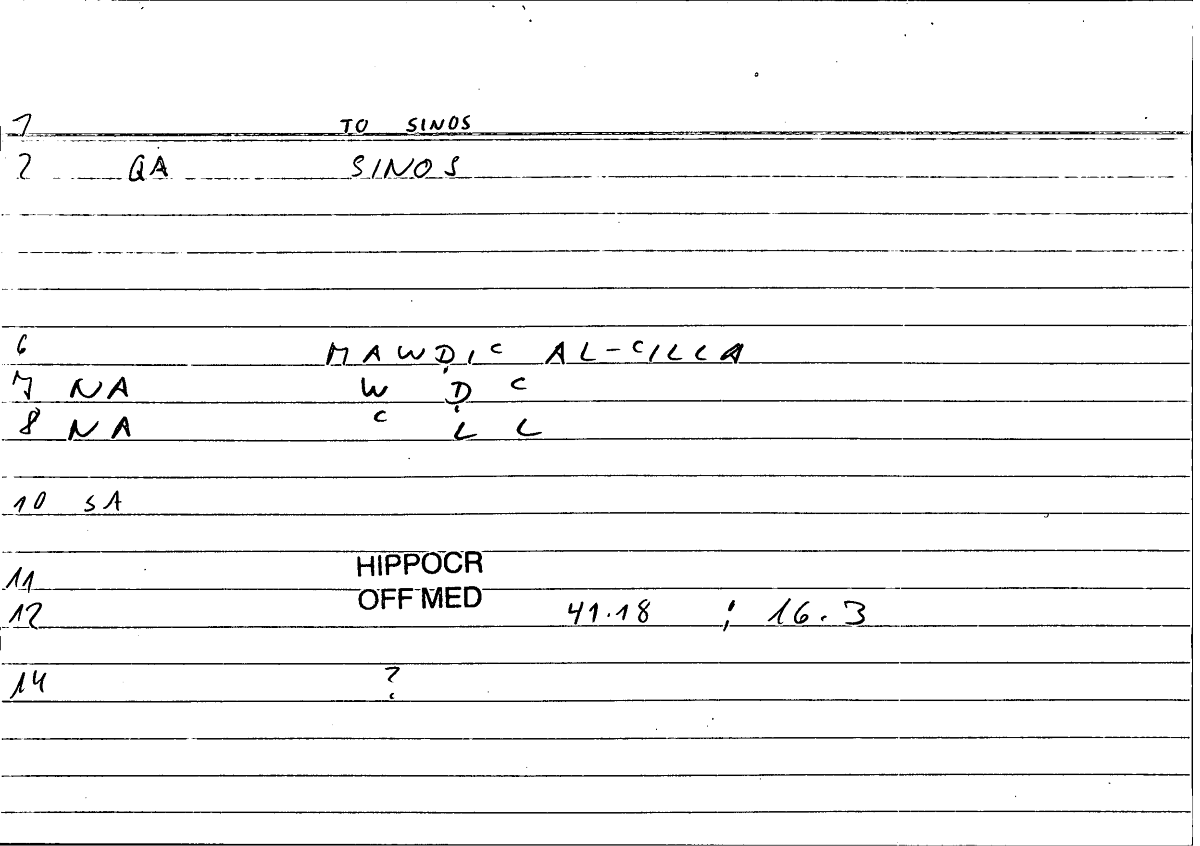 1 TO SINOS
2 QA SINOS
6 MAWḌIC AL-CILLA
7 NA W Ḍ C
8 NA C L L
10 SA
11 HIPPOCR
12 OFF MED 41.18 ; 16.3
14 ?